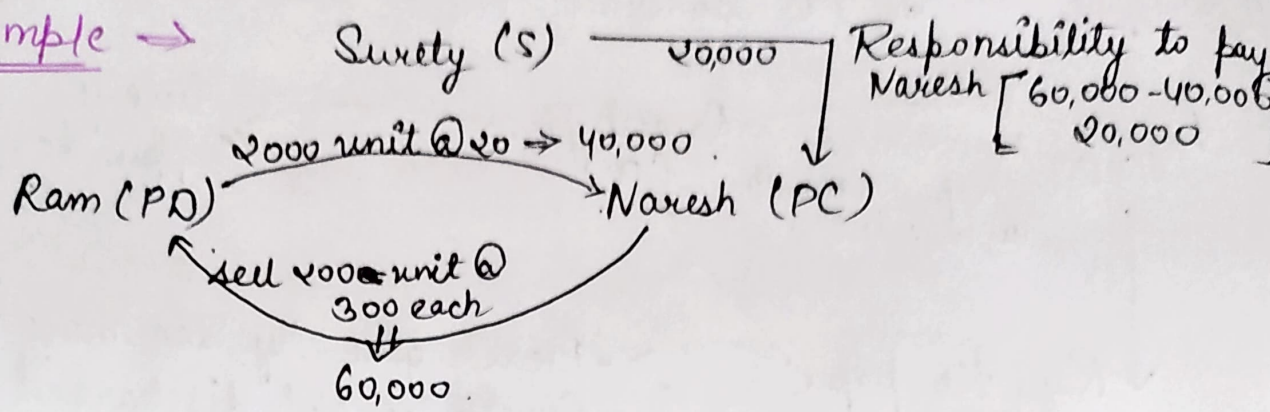 mple →
Surety (S) 20,000 Responsibility to pay
Naresh [60,000-40,000
20,000]
2000 unit @ 20 ⇒ 40,000.
Ram (PD) Naresh (PC)
sell 200 unit @
300 each
60,000.